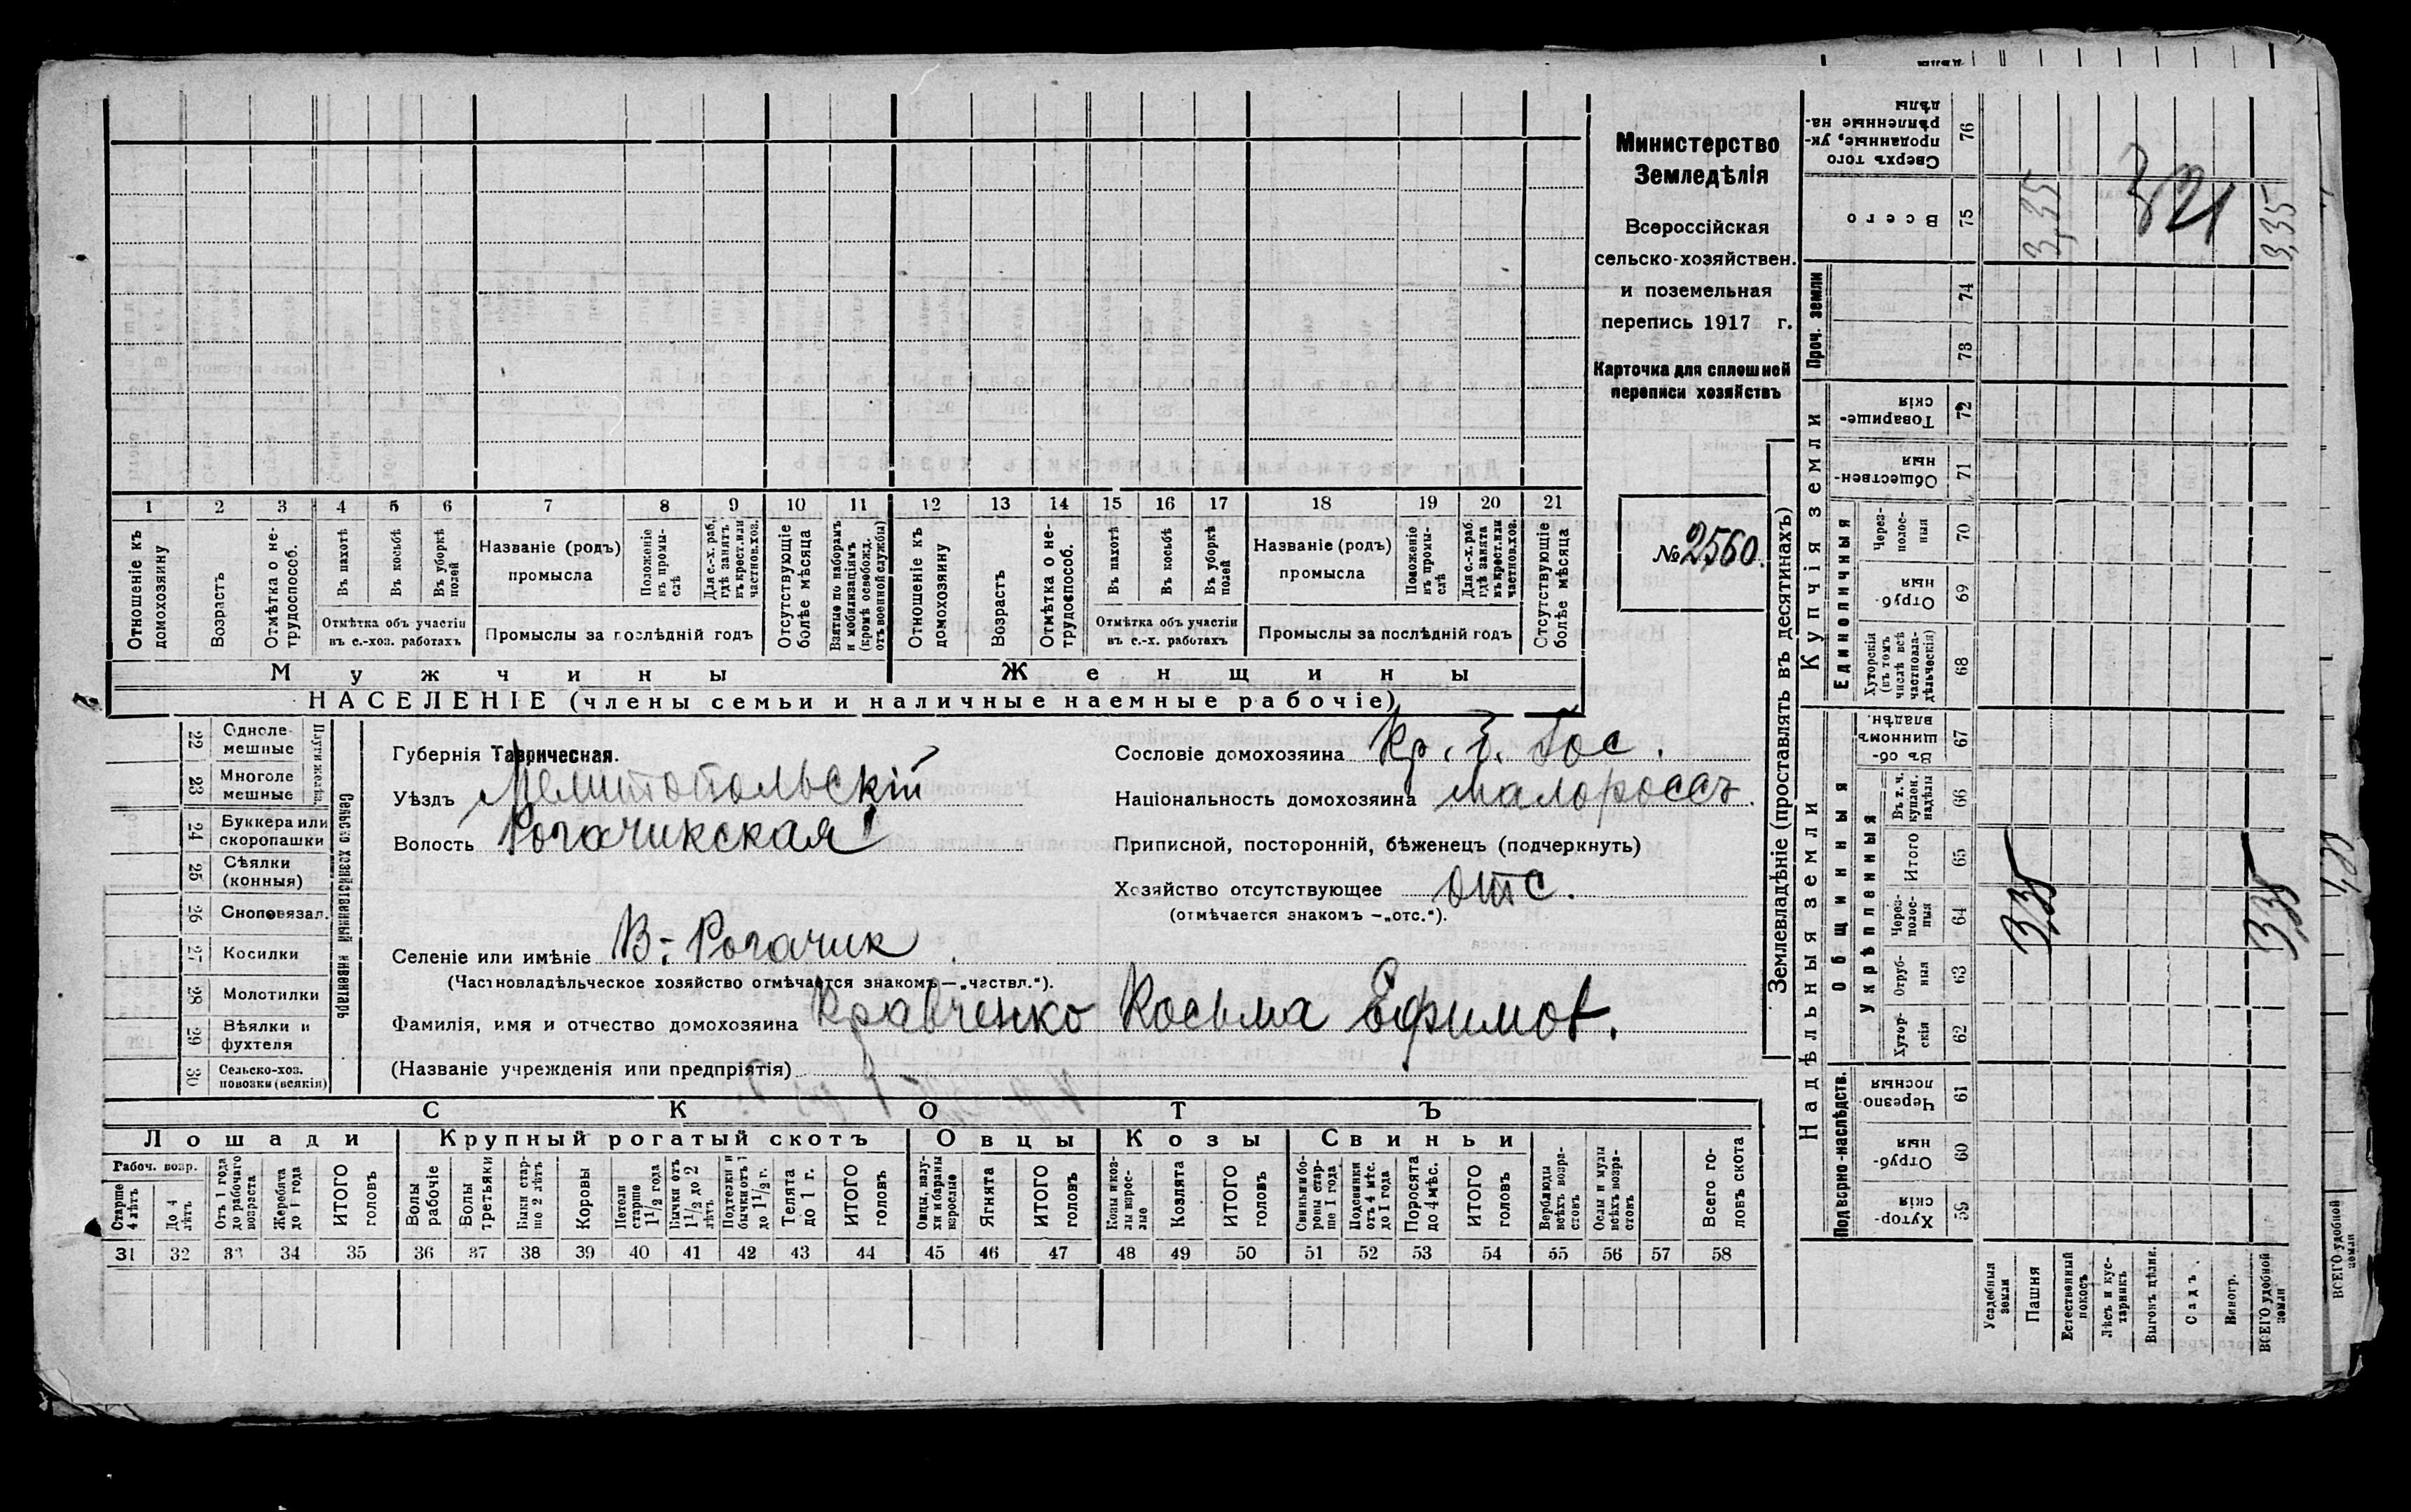 Министерство
Земледѣлія
Всероссійская
сельско-хозяйствен.
и поземельная
перепись 1917 г.
Карточка для сплошной
переписи хозяйствъ
№ 2560.
1 2 3 4 5 6 7 8 9 10 11 12 13 14 15 16 17 18 19 20 21
Отношеніе къ домохозяину
Возрастъ
Отмѣтка о не-трудоспособ.
Въ пахотѣ
Въ косьбѣ
Въ уборкѣ полей
Отмѣтка объ участіи въ с.-хоз. работахъ
Названіе (родъ) промысла
Положеніе въ промы-слѣ
Для с.-х. раб. гдѣ занятъ въ крест. или частнов. хоз.
Промыслы за послѣдній годъ
Отсутствующіе болѣе мѣсяца
Взятые по наборамъ и мобилизаціямъ (кромѣ освобожд. отъ военной службы)
Отношеніе къ домохозяину
Возрастъ
Отмѣтка о не-трудоспособ.
Въ пахотѣ
Въ косьбѣ
Въ уборкѣ полей
Отмѣтка объ участіи въ с.-х. работахъ
Названіе (родъ) промысла
Положеніе въ промы-слѣ
Для с.-х. раб. гдѣ занята въ крест. или частнов. хоз.
Промыслы за послѣдній годъ
Отсутствующіе болѣе мѣсяца
Мужчины Женщины
НАСЕЛЕНІЕ (члены семьи и наличные наемные рабочіе)
Сельско хозяйственный инвентарь
22 Одноле-мешные
23 Многоле мешные
24 Буккера или скоропашки
25 Сѣялки (конныя)
26 Сноповязал.
27 Косилки
28 Молотилки
29 Вѣялки и фухтеля
30 Сельско-хоз. повозки (всякія)
Губернія Таврическая.
Уѣздъ Мелитопольскій
Волость Рогачикская
Селеніе или имѣніе В.-Рогачик
(Частновладѣльческое хозяйство отмѣчается знакомъ—„частвл.“).
Фамилія, имя и отчество домохозяина Кравченко Косьма Ефимов.
(Названіе учрежденія или предпріятія)
Сословіе домохозяина Кр. б. Гос.
Національность домохозяина малороссъ.
Приписной, посторонній, бѣженецъ (подчеркнуть)
Хозяйство отсутствующее отс.
(отмѣчается знакомъ —„отс.“).
СКОТЪ
Лошади Крупный рогатый скотъ Овцы Козы Свиньи
Рабоч. возр.
Старше 4 лѣтъ
До 4 лѣтъ
Отъ 1 года до рабочаго возраста
Жеребята до 1 года
ИТОГО головъ
Волы рабочіе
Волы третьяки
Быки стар-ше 2 лѣтъ
Коровы
Нетели старше 1 1/2 года
Бычки отъ 1 1/2 до 2 лѣтъ
Подтелки и бычки отъ 1 до 1 1/2 г.
Телята до 1 г.
ИТОГО головъ
Овцы, валу-хи и бараны взрослые
Ягнята
ИТОГО головъ
Козы и коз-лы взрос-лые
Козлята
ИТОГО головъ
Свиньи и бо-ровы стар-ше 1 года
Подсвинки отъ 4 мѣс. до 1 года
Поросята до 4 мѣс.
ИТОГО головъ
Верблюды всѣхъ возра-стовъ
Ослы и мулы всѣхъ возра-стовъ
Всего го-ловъ скота
31 32 33 34 35 36 37 38 39 40 41 42 43 44 45 46 47 48 49 50 51 52 53 54 55 56 57 58
Землевладѣніе (проставлять въ десятинахъ)
Сверхъ того проданные, ук-рѣпленные на-дѣлы 76
Всего 75 3,35 321 3,35
Проч. земли 74 73
Купчія земли
Товарище-скія 72
Обществен-ныя 71
Единоличныя
Через-полос-ныя 70
Отруб-ныя 69
Хуторскія (въ томъ числѣ всѣ частновла-дѣльческія) 68
Надѣльныя земли
Общинныя
Въ об-щинномъ владѣн. 67
Укрѣпленныя
Въ т. ч. куплен. надѣлы 66
Итого 65
Через-полос-ныя 64 3,35 3,35
Отруб-ныя 63
Хутор-скія 62
Подворно-наслѣдств.
Черезпо-лосныя 61
Отруб-ныя 60
Хутор-скія 59
Усадебныя земли
Пашня
Естественный покосъ
Лѣсъ и кус-тарникъ
Выгонъ дѣлин.
Садъ
Виногр.
ВСЕГО удобной земли
ВСЕГО удобной земли